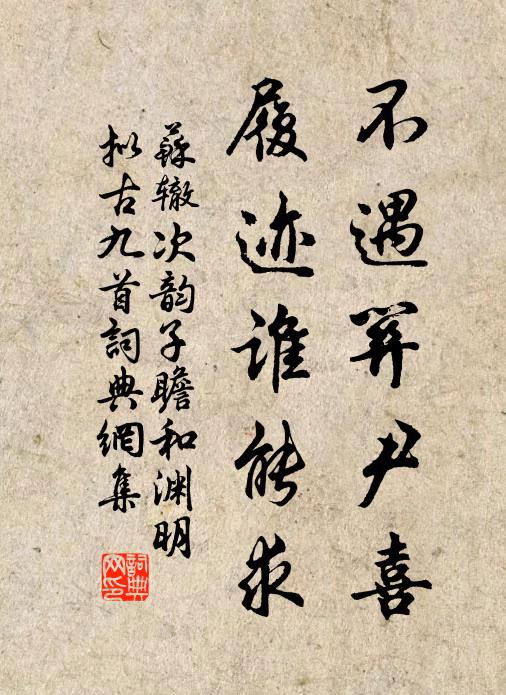 不遇关尹喜
履迹谁能求
蘇辙次韵子瞻和渊明
拟古九首詞典網集
詞典
网印